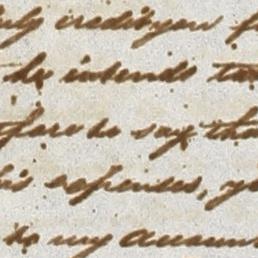 credit you
he intends
fore to say tha
his expences, y
to my Accoun